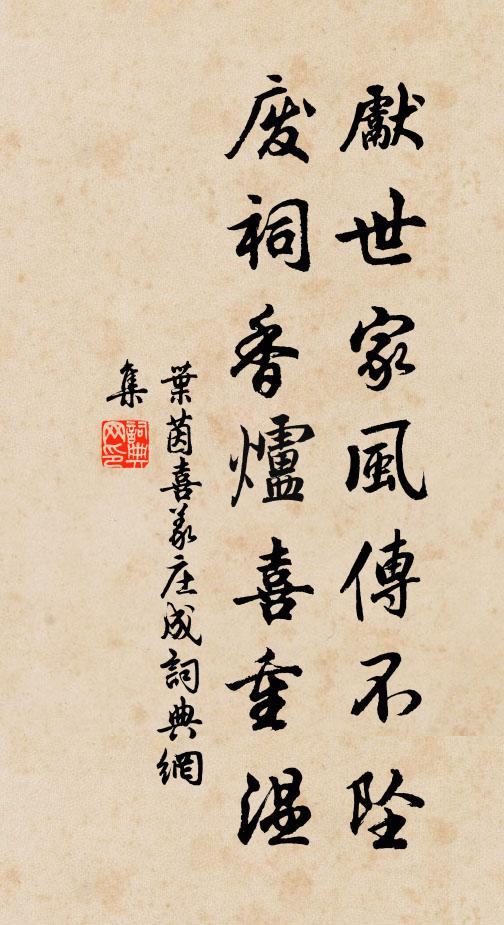 獻世家風傳不墜
废祠香爐喜重温
葉茵喜義庄成詞典網
集
詞典网印